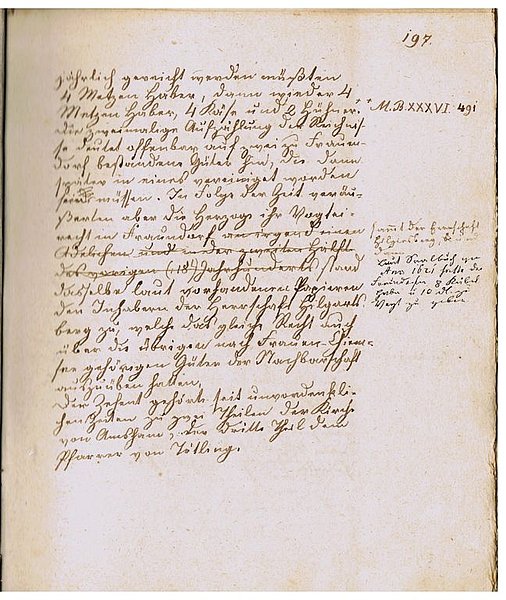 197.
jährlich gereicht werden mußten
4 Metzen Haber, dann wieder 4
Metzen Haber, 4 Käse und 2 Hühner.*
* M.B XXXVI. 491
die zweimalige Aufzählung der Reichnis-
se deutet offenbar auf zwei zu Frauen-
dorf bestandene Güter hin, die dann
später in eines vereinigt worden
sein müssen. In Folge der Zeit veräu-
ßerten aber die Herzoge ihr Vogtei-
recht in Fraundorf an irgend einen
Edelsitz und in der zweiten Hälfte
des vorigen (18t) Jahrhunderts stand
dasselbe laut vorhandenen Papieren
den Inhabern der Herrschaft Hilgarts
berg zu, welche das gleiche Recht auch
über die übrigen nach Frauen-Chiem-
see gehörigen Güter der Nachbarschaft
auszuüben hatten.
Der Zehent gehörte seit unvordenkli-
chen Zeiten zu zwei Theilen der Kirche
von Amsham, der dritte Theil dem
Pfarrer von Tötling.
samt der Herrschaft
Hilgartsberg,
Laut Saalbuch von
Ano 1621 hatte der
8
Haber u 10 dl
Vogt zu geben